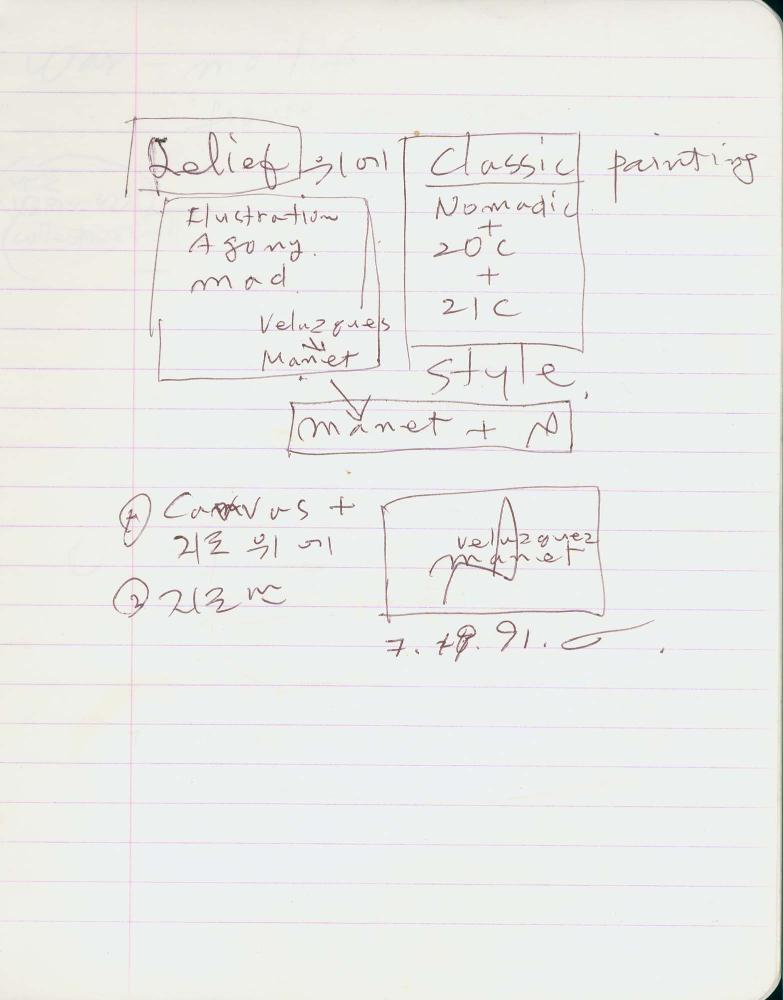 Relief 위에 Classic painting
Illustration
Agony.
mad
Velazques
Manet
Nomadic
+
20C
+
21C
Style.
manet +
① Canvas +
지로 위에
② 지로
velazquez
manet
7. 18. 91.